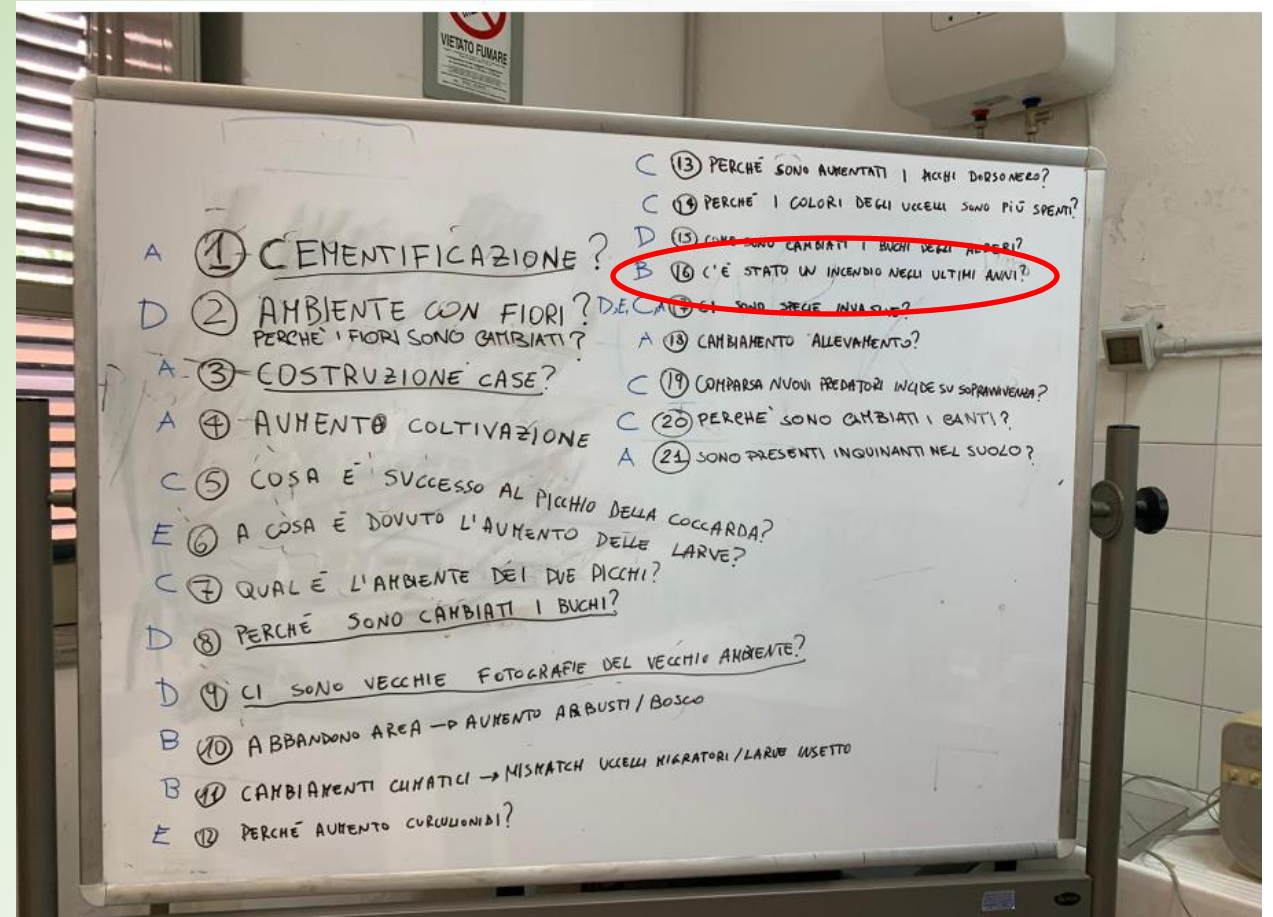 VIETATO FUMARE
A ① CEMENTIFICAZIONE?
D ② AMBIENTE CON FIORI?
PERCHÈ I FIORI SONO CAMBIATI?
A ③ COSTRUZIONE CASE?
A ④ AUMENTO COLTIVAZIONE
C ⑤ COSA È SUCCESSO AL PICCHIO DELLA COCCARDA?
E ⑥ A COSA È DOVUTO L'AUMENTO DELLE LARVE?
C ⑦ QUAL È L'AMBIENTE DEI DUE PICCHI?
D ⑧ PERCHÉ SONO CAMBIATI I BUCHI?
D ⑨ CI SONO VECCHIE FOTOGRAFIE DEL VECCHIO AMBIENTE?
B ⑩ ABBANDONO AREA → AUMENTO ARBUSTI / BOSCO
B ⑪ CAMBIAMENTI CLIMATICI → MISMATCH UCCELLI MIGRATORI / LARVE INSETTO
E ⑫ PERCHÉ AUMENTO CURCULIONIDI?
C ⑬ PERCHÉ SONO AUMENTATI I PICCHI DORSONERO?
C ⑭ PERCHÉ I COLORI DEGLI UCCELLI SONO PIÙ SPENTI?
D ⑮ COME SONO CAMBIATI I BUCHI DEGLI ALBERI?
B ⑯ C'È STATO UN INCENDIO NEGLI ULTIMI ANNI?
D,E,C,A ⑰ CI SONO SPECIE INVASIVE?
A ⑱ CAMBIAMENTO ALLEVAMENTO?
C ⑲ COMPARSA NUOVI PREDATORI INCIDE SU SOPRAVVIVENZA?
C ⑳ PERCHÈ SONO CAMBIATI I CANTI?
A ㉑ SONO PRESENTI INQUINANTI NEL SUOLO?